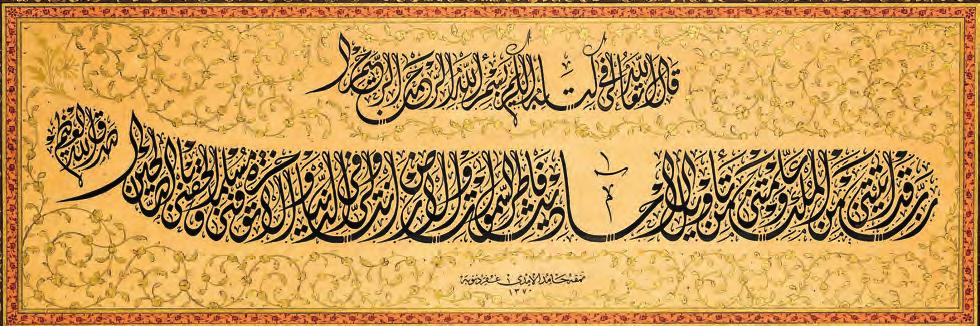 قال الله تعالى في كتابه الكريم بسم الله الرحمن الرحيم
رب قد آتيتني من الملك وعلمتني من تأويل الأحاديث فاطر السموات والأرض أنت وليي في الدنيا والآخرة توفني مسلما وألحقني بالصالحين
صدق الله العظيم
نمقه حامد الآمدي غفر ذنوبه
١٣٧٠